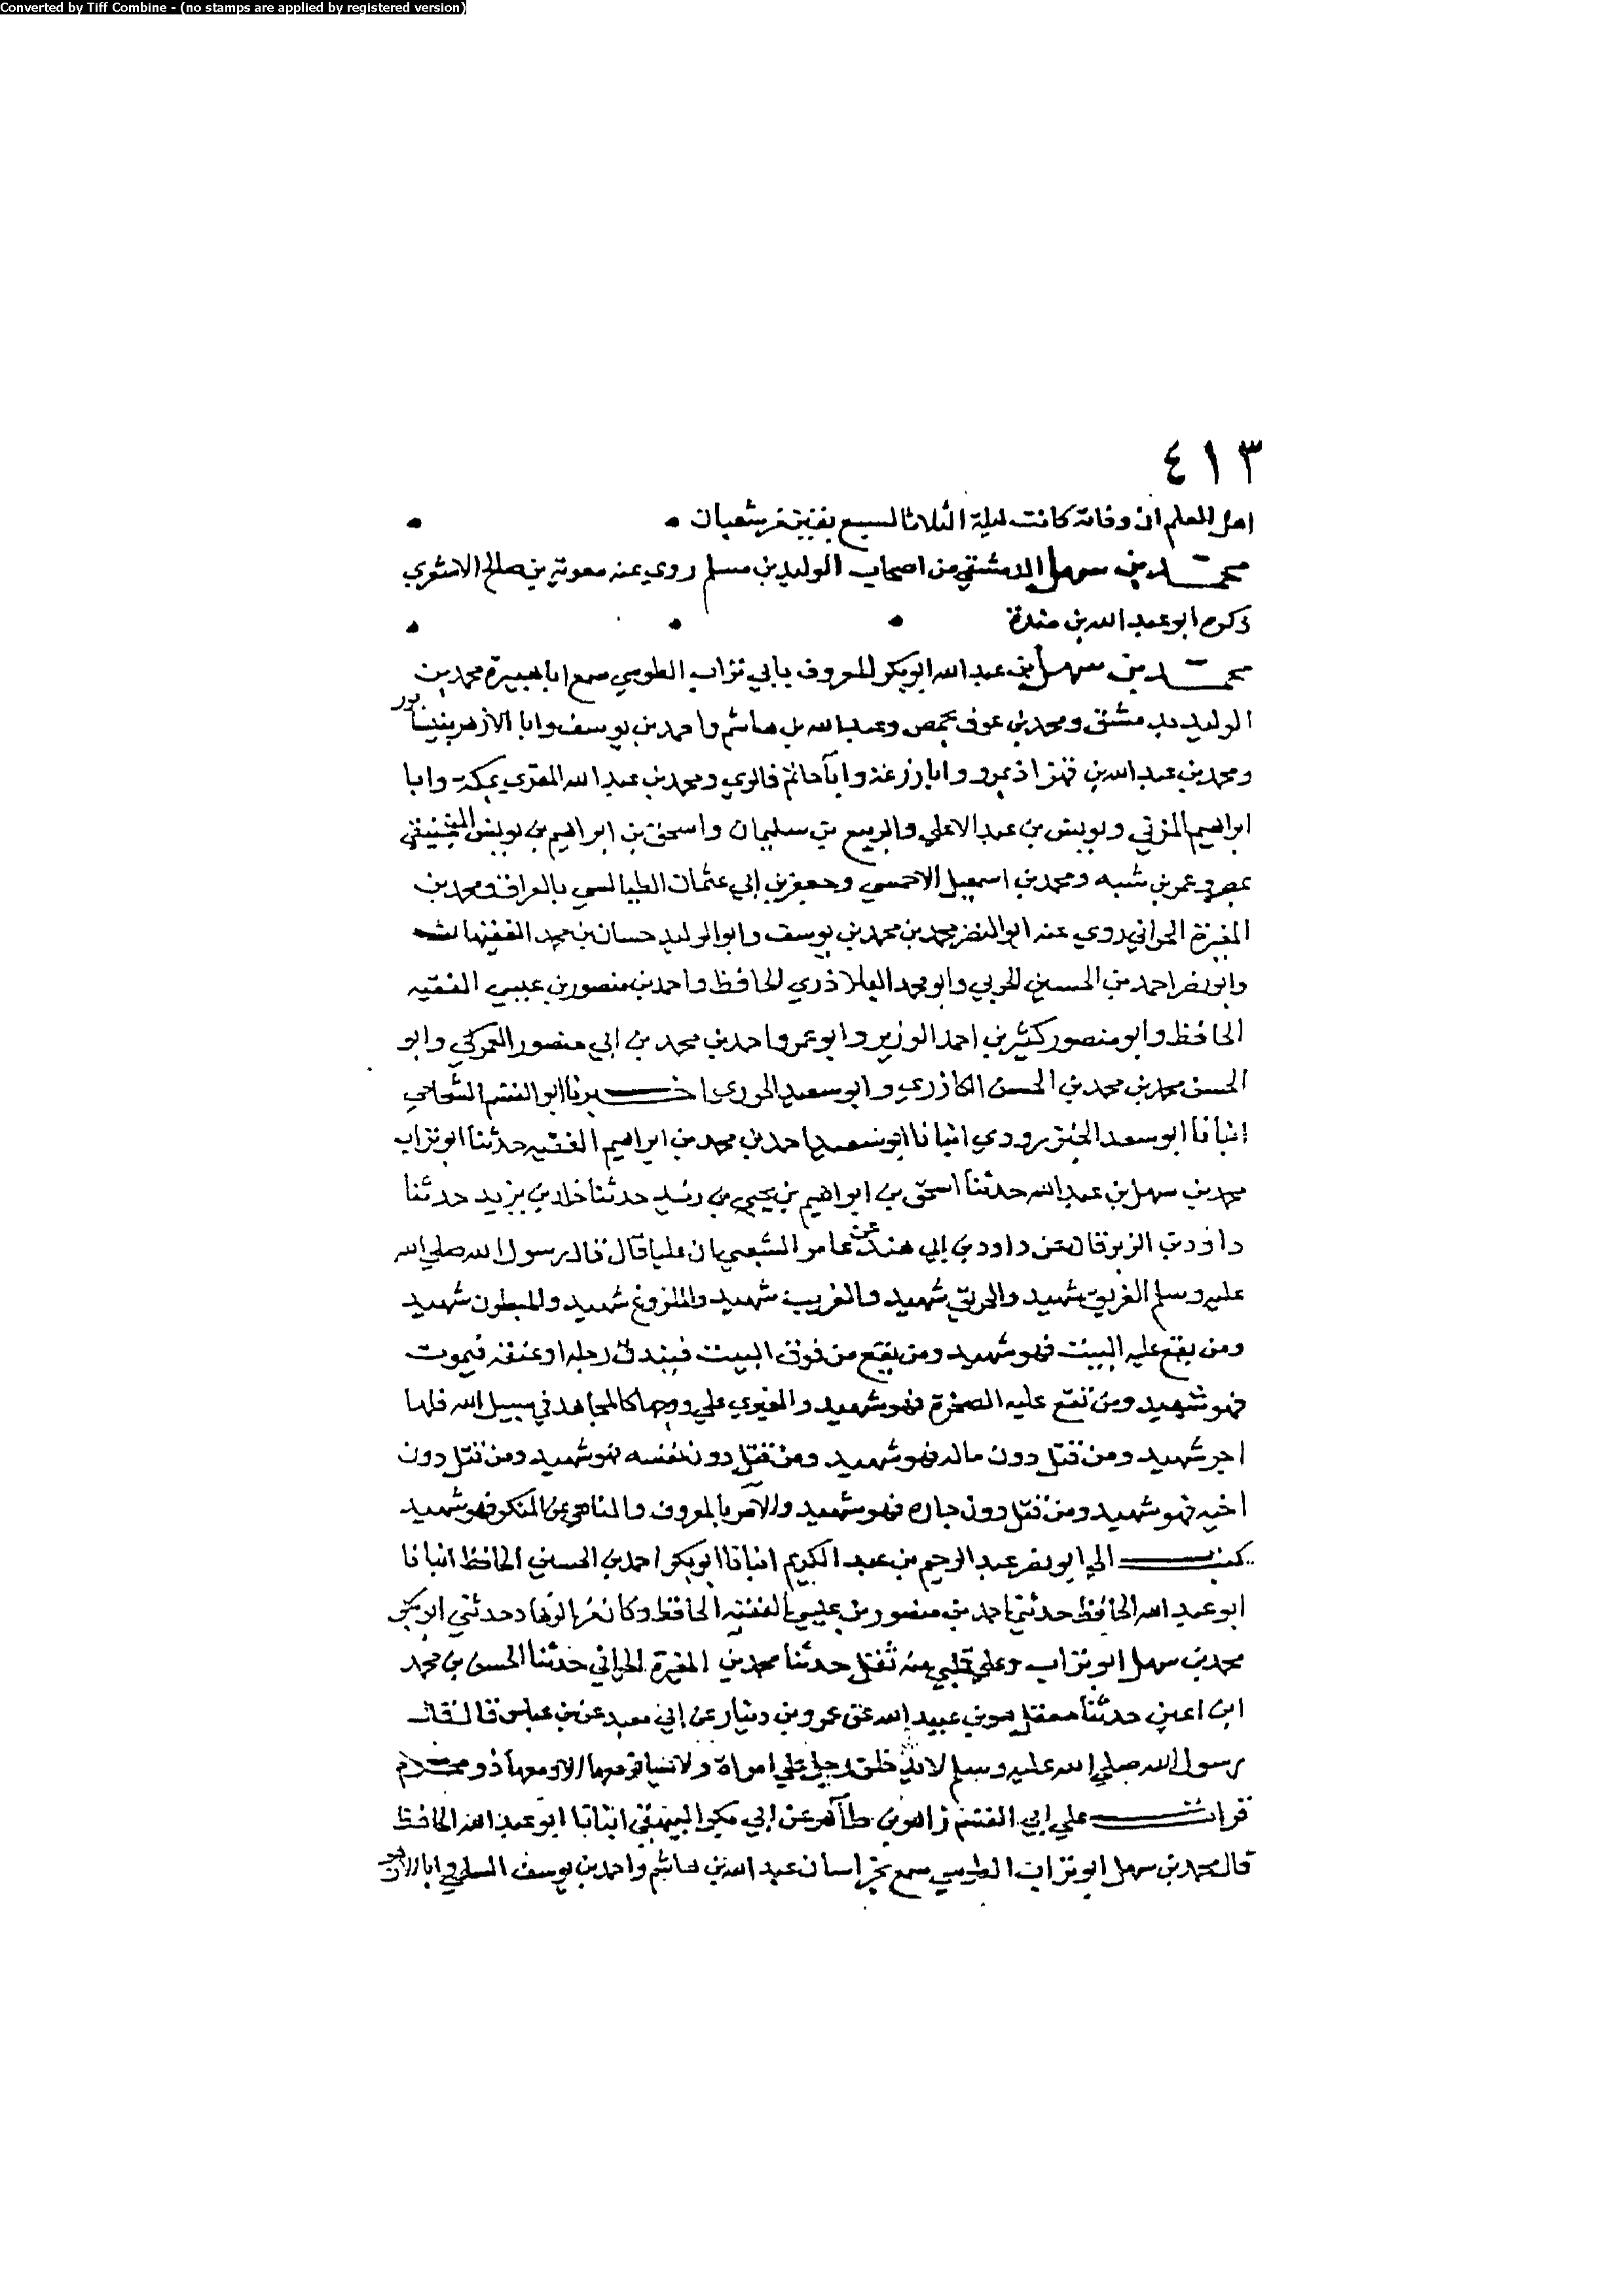 Converted by Tiff Combine - (no stamps are applied by registered version)
٤١٣
اهل العلم ان وفاته كانت ليلة الثلاثا لسبع بقين من شعبان
محمد بن سهل الدمشقي من اصحاب الوليد بن مسلم روي عنه معوية بن صالح الاشعري
ذكره ابو عبد الله بن مندة
محمد بن سهل بن عبد الله ابو بكر المعروف بابي تراب الطوسي سمع ابا هبيرة محمد بن
الوليد بدمشق ومحمد بن عوف بحمص وعبد الله بن هاشم واحمد بن يوسف وابا الازهر بنيسابور
ومحمد بن عبد الله بن قهزاذ بمرو وابا زرعة وابا حاتم بالري ومحمد بن عبد الله المقري بمكة وابا
ابراهيم المزني ويونس بن عبد الاعلي والربيع بن سليمان واسحق بن ابراهيم بن يونس المنجنيقي
بمصر وعمر بن شبه ومحمد بن اسمعيل الاحمسي وجعفر بن ابي عثمان الطيالسي بالعراق ومحمد بن
المغيرة الحراني روي عنه ابو النضر محمد بن محمد بن يوسف وابو الوليد حسان بن محمد الفقيهان
وابو نصر احمد بن الحسين الحربي وابو محمد البلاذري الحافظ واحمد بن منصور بن عيسي الفقيه
الحافظ وابو منصور كثير بن احمد الوزير وابو عمرو احمد بن محمد بن ابي منصور العمركي وابو
الحسن محمد بن محمد بن الحسن الكازري وابو سعيد الجوري اخبرنا ابو القسم الشحامي
انبانا ابو سعد الجنزرودي انبانا ابو سعيد احمد بن محمد بن ابراهيم الفقيه حدثنا ابو تراب
محمد بن سهل بن عبد الله حدثنا اسحق بن ابراهيم بن يحيي بن حدثنا خالد بن يزيد حدثنا
داود بن الزبرقان عن داود بن ابي هند عن عامر الشعبي ان عليا قال قال رسول الله صلي الله
عليه وسلم الغريق شهيد والحريق شهيد والغريب شهيد والملدوغ شهيد والمبطون شهيد
ومن يقع عليه البيت فهو شهيد ومن يقع من فوق البيت فيندق رجله او عنقه فيموت
فهو شهيد ومن تقع عليه الصخرة فهو شهيد والغيري علي زوجها كالمجاهد في سبيل الله فلها
اجر شهيد ومن قتل دون ماله فهو شهيد ومن قتل دون نفسه فهو شهيد ومن قتل دون
اخيه فهو شهيد ومن قتل دون جاره فهو شهيد والآمر بالمعروف والناهي عن المنكر فهو شهيد
كتب الي ابو نصر عبد الرحيم بن عبد الكريم انبانا ابو بكر احمد بن الحسين الحافظ انبانا
ابو عبد الله الحافظ حدثني احمد بن منصور بن عيسي الفقيه الحافظ وكان من الزهاد حدثني ابو بكر
محمد بن سهل ابو تراب وعلي قلبي منه ثقل حدثنا محمد بن المغيرة الحراني حدثنا الحسن بن محمد
ابن اعين حدثنا معقل هو بن عبيد الله عن عمرو بن دينار عن ابي معبد عن بن عباس قال قال
رسول الله صلي الله عليه وسلم لا رجل علي امراة ولا تسافر معها الا ومعها ذو محرم
قرات علي ابي القسم زاهر بن طاهر عن ابي بكر البيهقي انبانا ابو عبد الله الحافظ
قال محمد بن سهل ابو تراب الطوسي سمع بخراسان عبد الله بن هاشم واحمد بن يوسف السلمي وابا الازهر